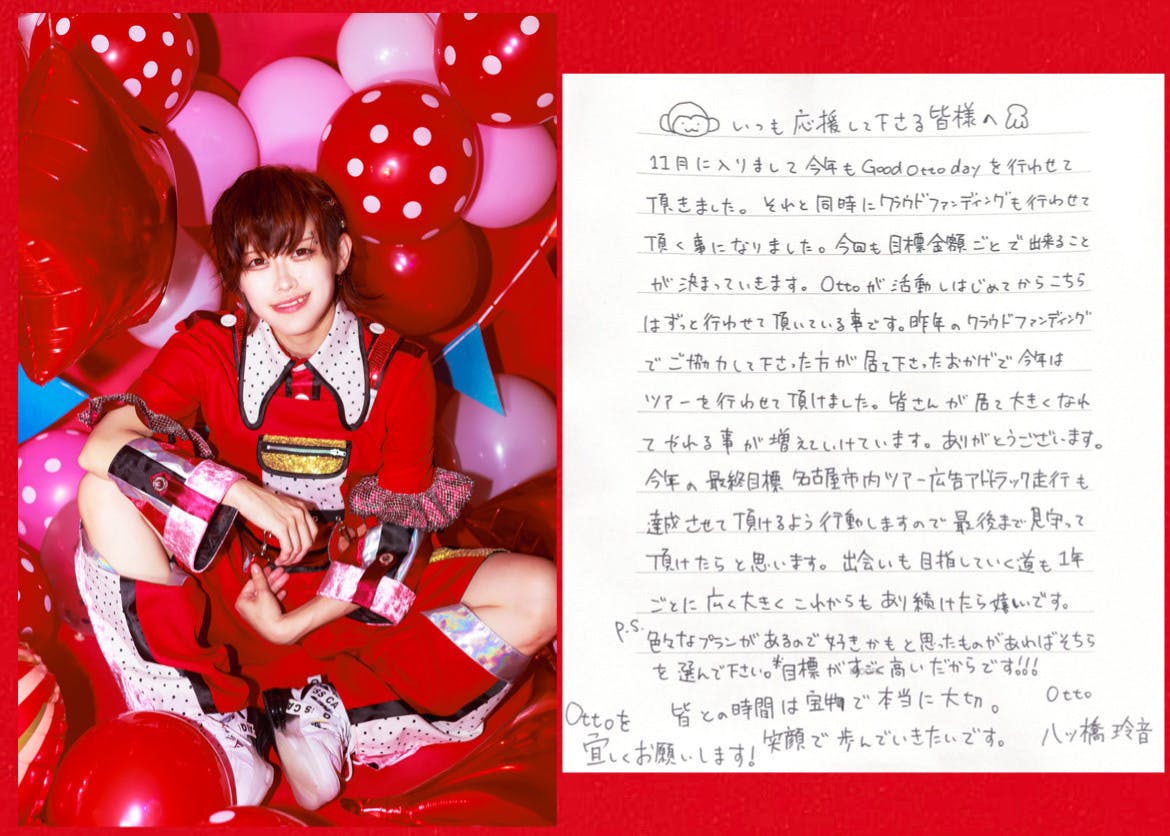 いつも応援して下さる皆様へ
11月に入りまして今年もGood Otto dayを行わせて
頂きました。それと同時にクラウドファンディングも行わせて
頂く事になりました。今回も目標金額ごとで出来ること
が決まっていきます。Ottoが活動しはじめてからこちら
はずっと行わせて頂いている事です。昨年のクラウドファンディング
でご協力して下さった方が居て下さったおかげで今年は
ツアーを行わせて頂けました。皆さんが居て大きくなれ
てやれる事が増えていけています。ありがとうございます。
今年の最終目標名古屋市内ツアー広告アドトラック走行も
達成させて頂けるよう行動しますので最後まで見守って
頂けたらと思います。出会いも目指していく道も1年
ごとに広く大きくこれからもあり続けたら嬉しいです。
P.S.
色々なプランがあるので好きかもと思ったものがあればそちら
を選んで下さい。*目標がすごく高いだからです!!!
皆との時間は宝物で本当に大切。
笑顔で歩んでいきたいです。
Ottoを
宜しくお願いします!
Otto
八ッ橋玲音